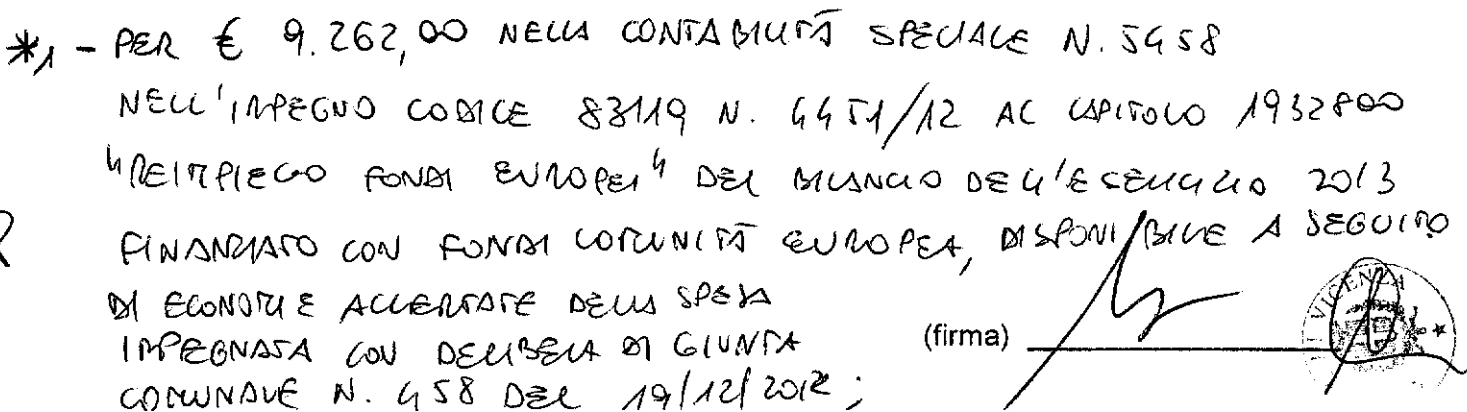 *1 - PER € 9.262,00 NELLA CONTABILITÀ SPECIALE N. 5458
NELL'IMPEGNO CODICE 83119 N. 4451/12 AL CAPITOLO 1932800
"REIMPIEGO FONDI EUROPEI" DEL BILANCIO DELL'ESERCIZIO 2013
FINANZIATO CON FONDI COMUNITÀ EUROPEA, DISPONIBILE A SEGUITO
DI ECONOMIE ACCERTATE DELLA SPESA
IMPEGNATA CON DELIBERA DI GIUNTA
COMUNALE N. 458 DEL 19/12/2012;
(firma)
VICENZA